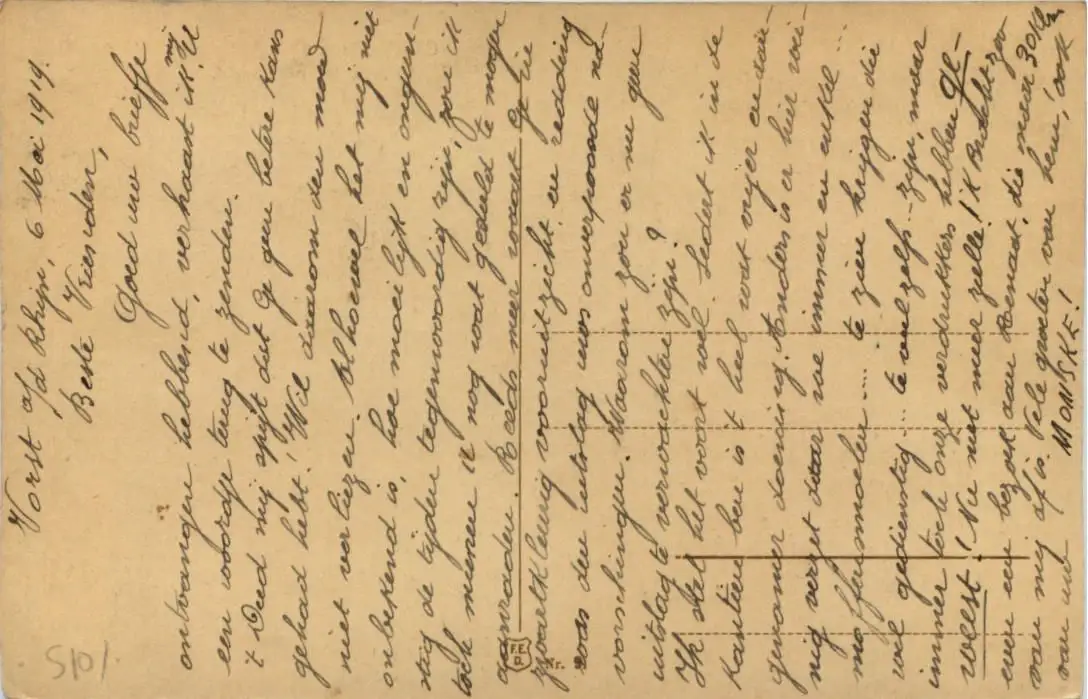 Vorst a/d Rhijn, 6 Mei 1919.
Beste Vrienden,
Goed uw briefje
ontvangen hebbend, verhaast ik mij U
een woordje terug te zenden.
't Deed mij spijt dat Gij geen betere kans
gehad hebt! Wil daarom den moed
niet verliezen. Alhoewel het mij niet
onbekend is, hoe moeilijk en
de tijden tegenwoordig zijn, zou ik
toch meenen U nog wat geduld te mogen
aanraden. Reeds meer waart Gij in
zwartkleurig vooruitzicht en redding
was den uitslag uws onverpoosde
vorschingen. Waarom zou er nu geen
uitslag te verwachten zijn?
Ik stel het voort wel. Sedert ik in de
Kantien ben is 't heel wat vrijer en
doening. Anders is er hier
verzet daar we immer en enkel ...
moffenmoelen .... te zien krijgen die
wel gedienstig ... te veel zelfs zijn, maar
immer toch onze verdrukkers hebben ge-
weest! Nu niet meer zelle! Ik bracht
een bezoek aan Renaat, die maar 30 Km
van mij af is. Vele groeten van hem, ook
van uw MONSKE!
F.E.D.
Nr.
5101